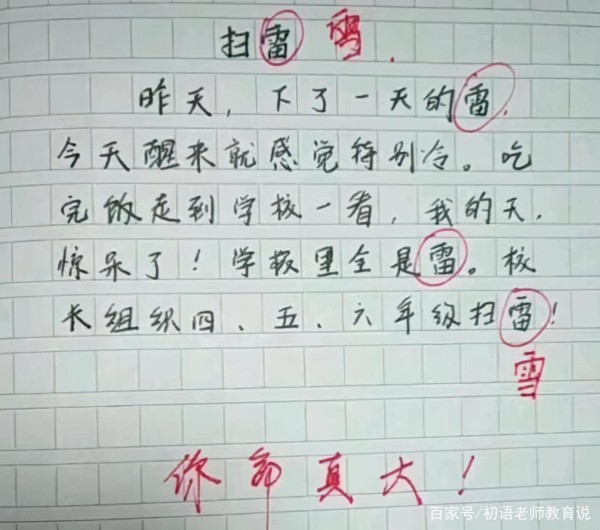 扫雷 雪.
昨天，下了一天的雷，
今天醒来就感觉特别冷。吃
完饭走到学校一看，我的天，
惊呆了！学校里全是雷。校
长组织四、五、六年级扫雷！
雪
你命真大！
百家号/初语老师教育说